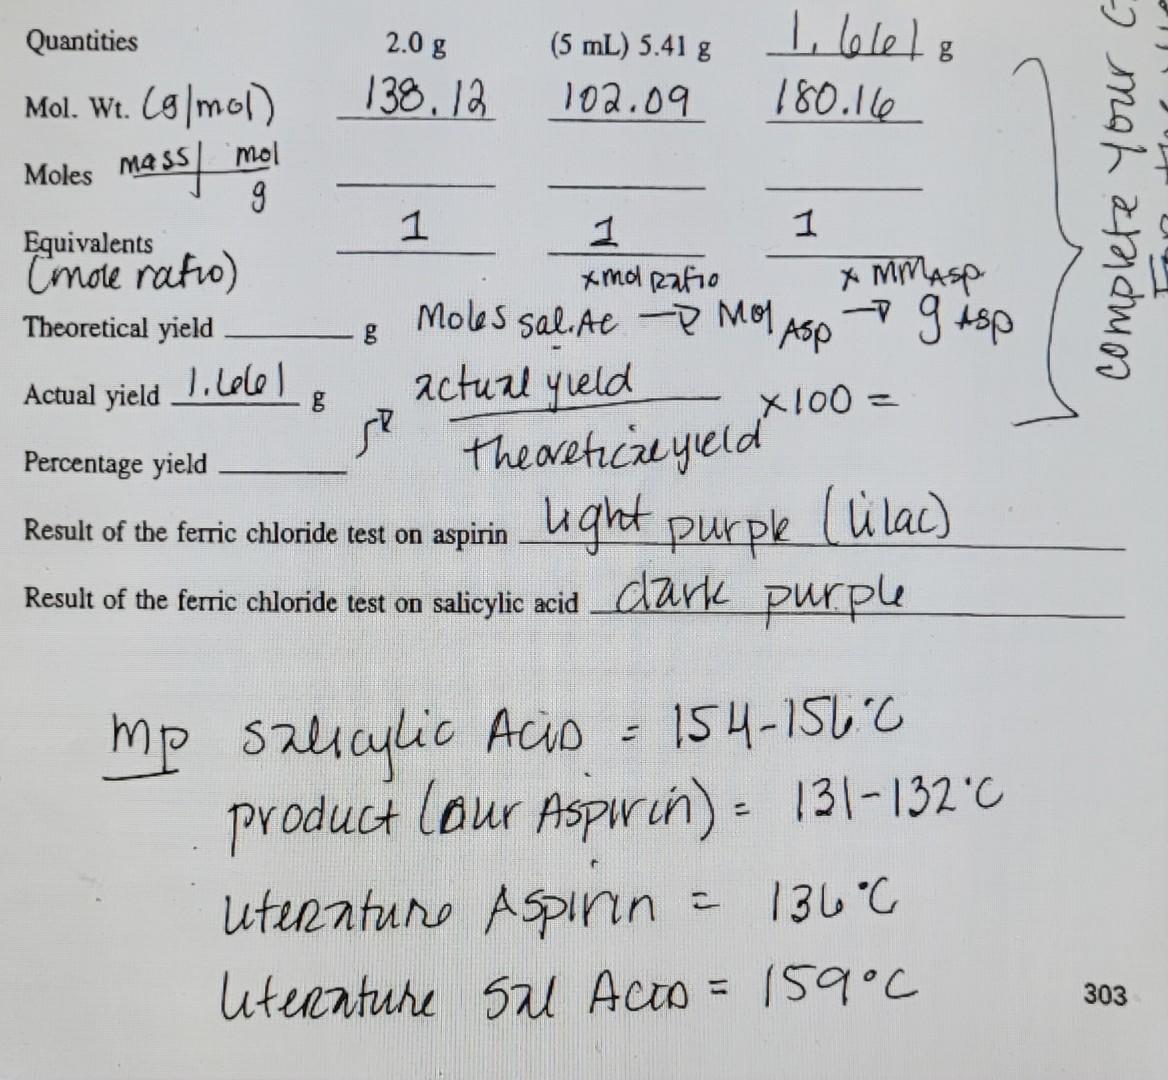 Quantities 2.0 g (5 mL) 5.41 g 1.661 g
Mol. Wt. (g/mol) 138.12 102.09 180.16
Moles mass | mol
g
1 1 1
Equivalents
(mole ratio) x mol ratio x MM Asp
Theoretical yield ______ g Moles Sal. Ac → Mol Asp → g Asp
Actual yield 1.661 g actual yield x100 =
Percentage yield ______ theoretical yield
Result of the ferric chloride test on aspirin light purple (lilac)
Result of the ferric chloride test on salicylic acid dark purple
mp salicylic Acid = 154-156°C
product (our Aspirin) = 131-132°C
literature Aspirin = 136°C
literature Sal Acid = 159°C
303
complete your